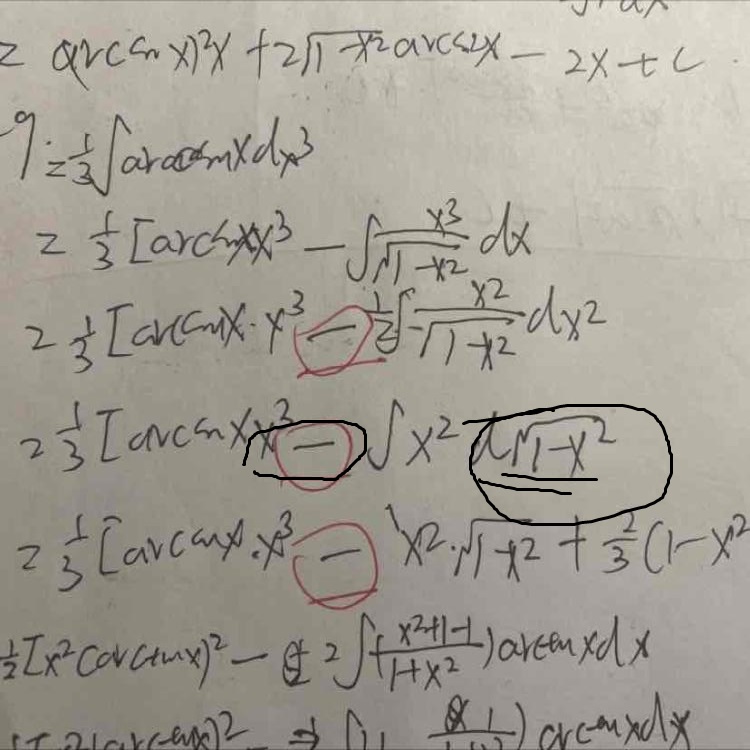 = (arcsin x)²x + 2√(1-x²) arcsin x - 2x + C
9. = 1/3 ∫ arcsin x dx³
= 1/3 [arcsin x x³ - ∫ x³/√(1-x²) dx
= 1/3 [arcsin x · x³ - 1/2 ∫ x²/√(1-x²) dx²
= 1/3 [arcsin x x³ - ∫ x² d√(1-x²)
= 1/3 [arcsin x · x³ - x² · √(1-x²) + 2/3 (1-x²
1/2 [x² (arctan x)² - 2 ∫ (x²+1-1/1+x²) arctan x dx
(arctan x)² ) arctan x dx